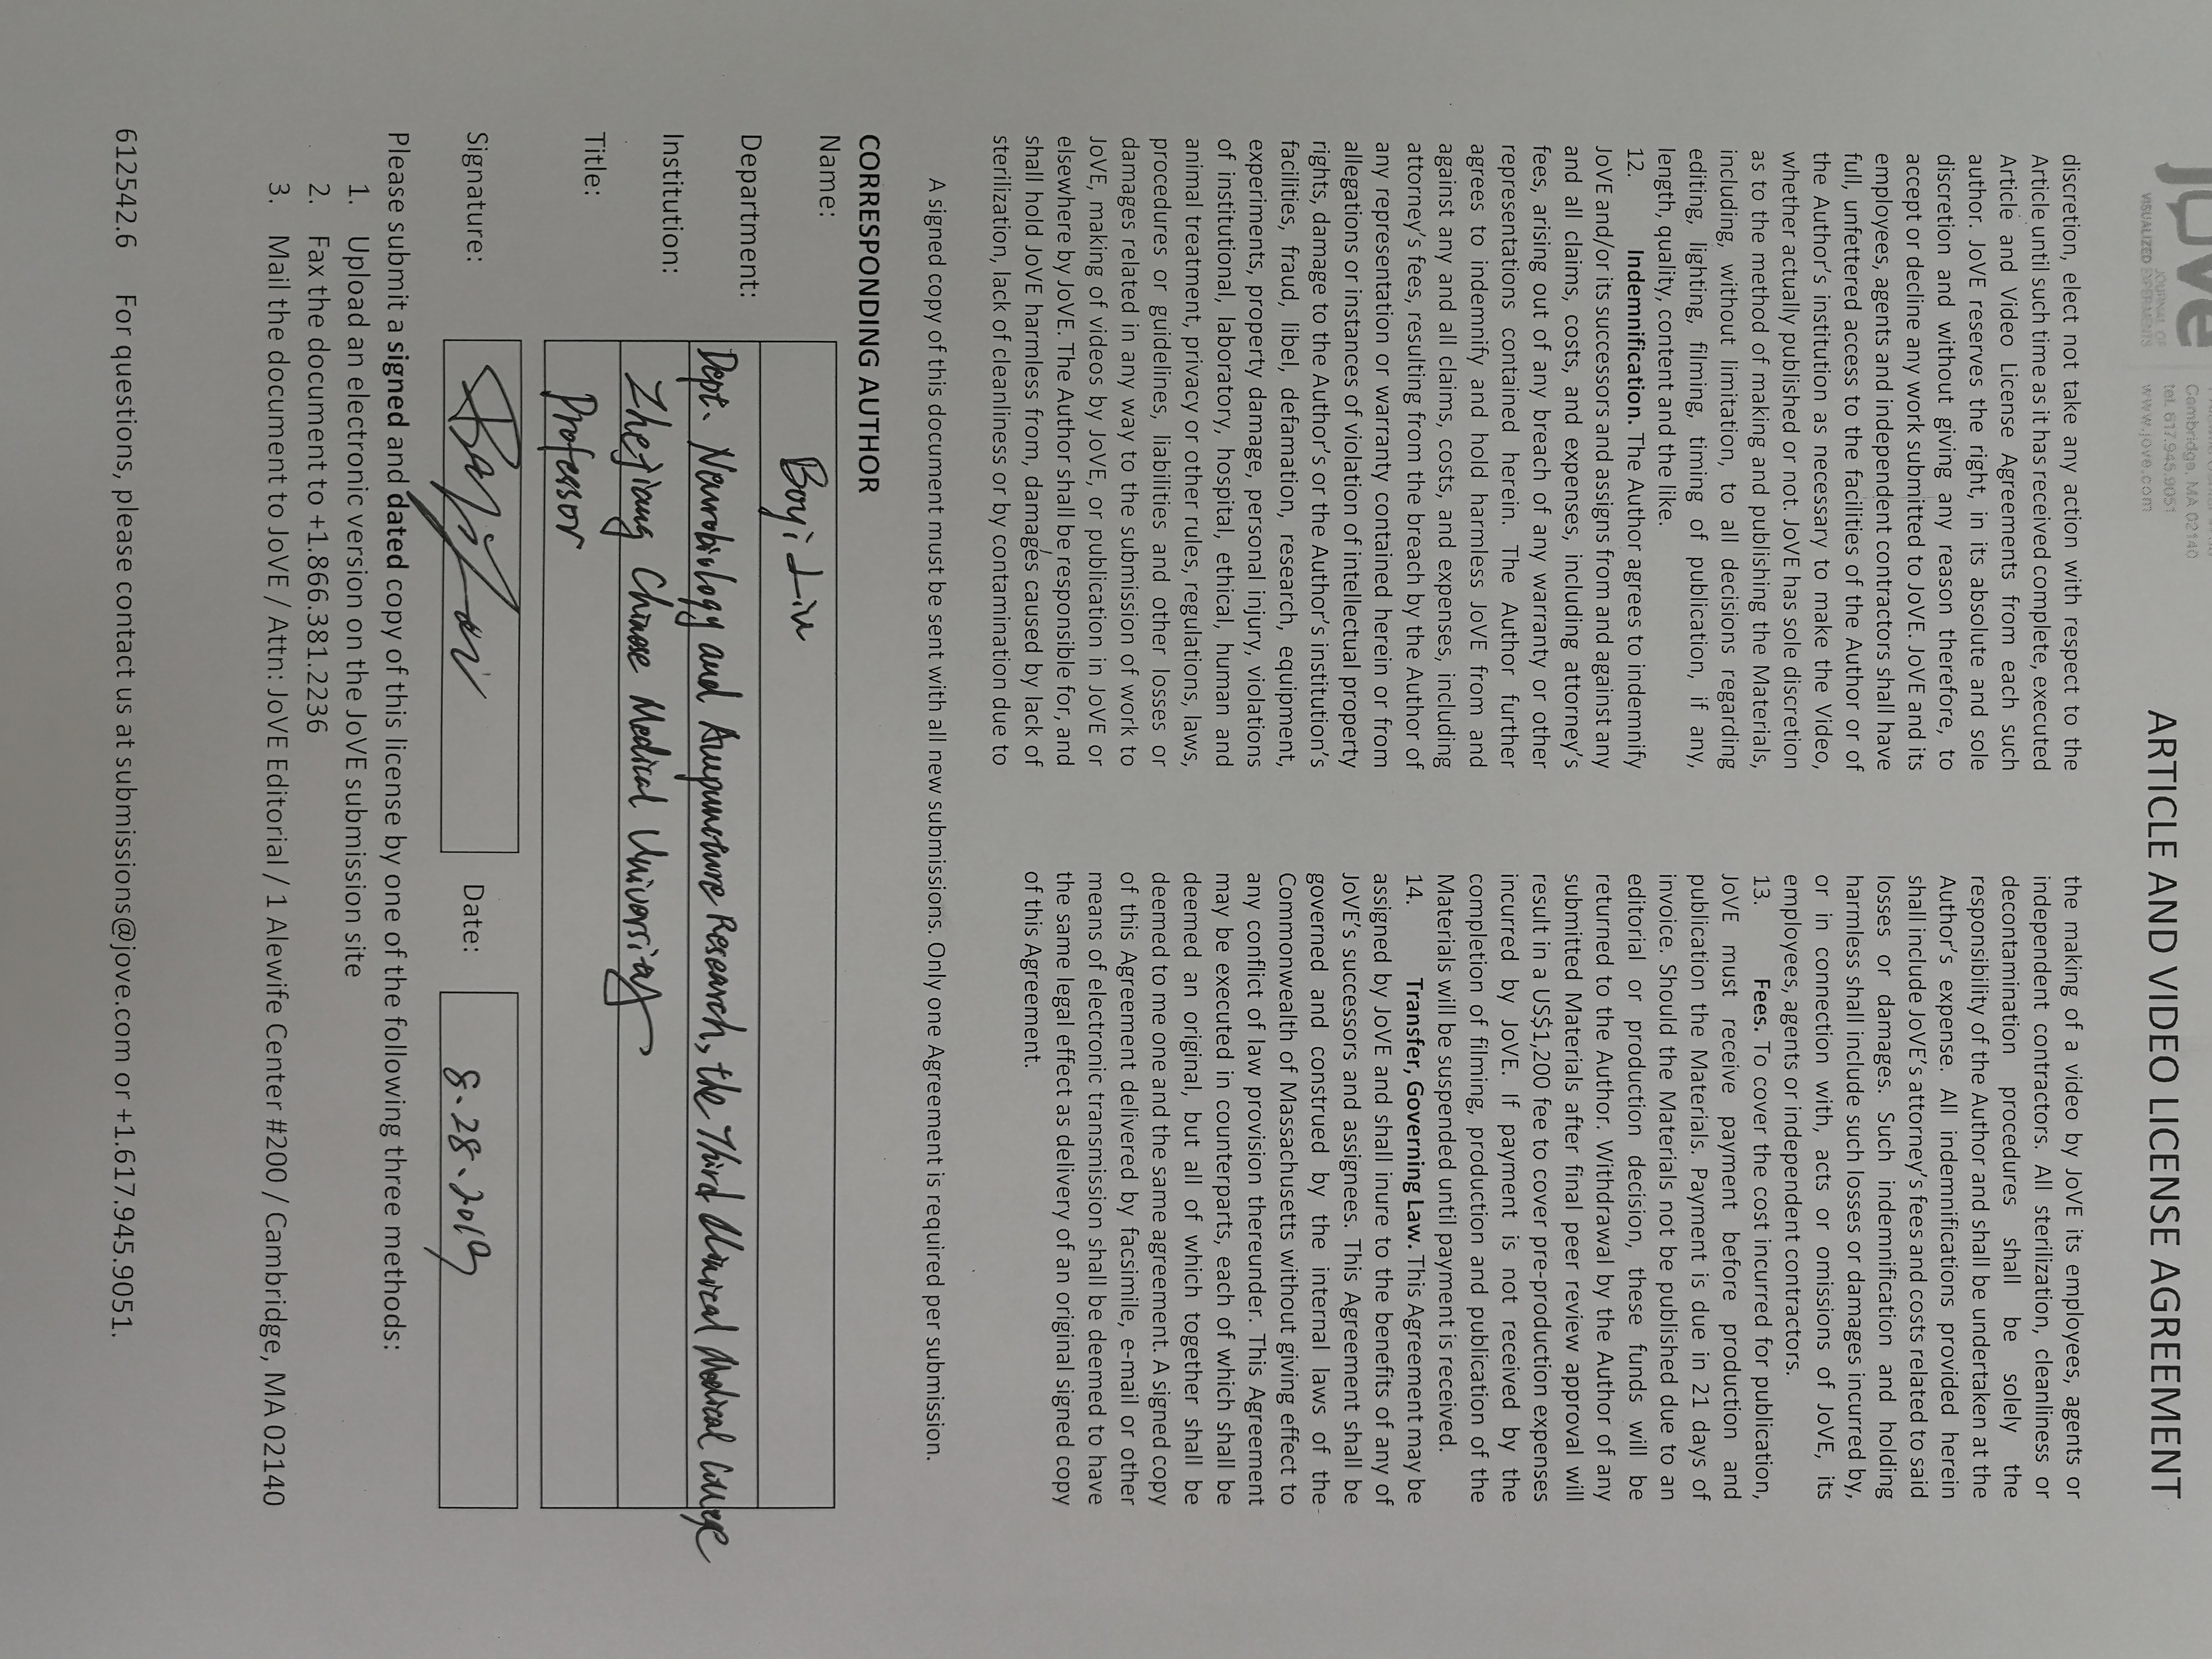 jove
JOURNAL OF
VISUALIZED EXPERIMENTS
Cambridge, MA 02140
tel. 617.945.9051
www.jove.com
ARTICLE AND VIDEO LICENSE AGREEMENT
discretion, elect not take any action with respect to the
Article until such time as it has received complete, executed
Article and Video License Agreements from each such
author. JoVE reserves the right, in its absolute and sole
discretion and without giving any reason therefore, to
accept or decline any work submitted to JoVE. JoVE and its
employees, agents and independent contractors shall have
full, unfettered access to the facilities of the Author or of
the Author's institution as necessary to make the Video,
whether actually published or not. JoVE has sole discretion
as to the method of making and publishing the Materials,
including, without limitation, to all decisions regarding
editing, lighting, filming, timing of publication, if any,
length, quality, content and the like.
12. Indemnification. The Author agrees to indemnify
JoVE and/or its successors and assigns from and against any
and all claims, costs, and expenses, including attorney's
fees, arising out of any breach of any warranty or other
representations contained herein. The Author further
agrees to indemnify and hold harmless JoVE from and
against any and all claims, costs, and expenses, including
attorney's fees, resulting from the breach by the Author of
any representation or warranty contained herein or from
allegations or instances of violation of intellectual property
rights, damage to the Author's or the Author's institution's
facilities, fraud, libel, defamation, research, equipment,
experiments, property damage, personal injury, violations
of institutional, laboratory, hospital, ethical, human and
animal treatment, privacy or other rules, regulations, laws,
procedures or guidelines, liabilities and other losses or
damages related in any way to the submission of work to
JoVE, making of videos by JoVE, or publication in JoVE or
elsewhere by JoVE. The Author shall be responsible for, and
shall hold JoVE harmless from, damages caused by lack of
sterilization, lack of cleanliness or by contamination due to
the making of a video by JoVE its employees, agents or
independent contractors. All sterilization, cleanliness or
decontamination procedures shall be solely the
responsibility of the Author and shall be undertaken at the
Author's expense. All indemnifications provided herein
shall include JoVE's attorney's fees and costs related to said
losses or damages. Such indemnification and holding
harmless shall include such losses or damages incurred by,
or in connection with, acts or omissions of JoVE, its
employees, agents or independent contractors.
13. Fees. To cover the cost incurred for publication,
JoVE must receive payment before production and
publication the Materials. Payment is due in 21 days of
invoice. Should the Materials not be published due to an
editorial or production decision, these funds will be
returned to the Author. Withdrawal by the Author of any
submitted Materials after final peer review approval will
result in a US$1,200 fee to cover pre-production expenses
incurred by JoVE. If payment is not received by the
completion of filming, production and publication of the
Materials will be suspended until payment is received.
14. Transfer, Governing Law. This Agreement may be
assigned by JoVE and shall inure to the benefits of any of
JoVE's successors and assignees. This Agreement shall be
governed and construed by the internal laws of the
Commonwealth of Massachusetts without giving effect to
any conflict of law provision thereunder. This Agreement
may be executed in counterparts, each of which shall be
deemed an original, but all of which together shall be
deemed to me one and the same agreement. A signed copy
of this Agreement delivered by facsimile, e-mail or other
means of electronic transmission shall be deemed to have
the same legal effect as delivery of an original signed copy
of this Agreement.
A signed copy of this document must be sent with all new submissions. Only one Agreement is required per submission.
CORRESPONDING AUTHOR
Name: Boyi Liu
Department: Dept. Neurobiology and Acupuncture Research, the Third Clinical Medical College
Institution: Zhejiang Chinese Medical University
Title: Professor
Signature: Date: 8.28.2019
Please submit a signed and dated copy of this license by one of the following three methods:
1. Upload an electronic version on the JoVE submission site
2. Fax the document to +1.866.381.2236
3. Mail the document to JoVE / Attn: JoVE Editorial / 1 Alewife Center #200 / Cambridge, MA 02140
612542.6 For questions, please contact us at submissions@jove.com or +1.617.945.9051.